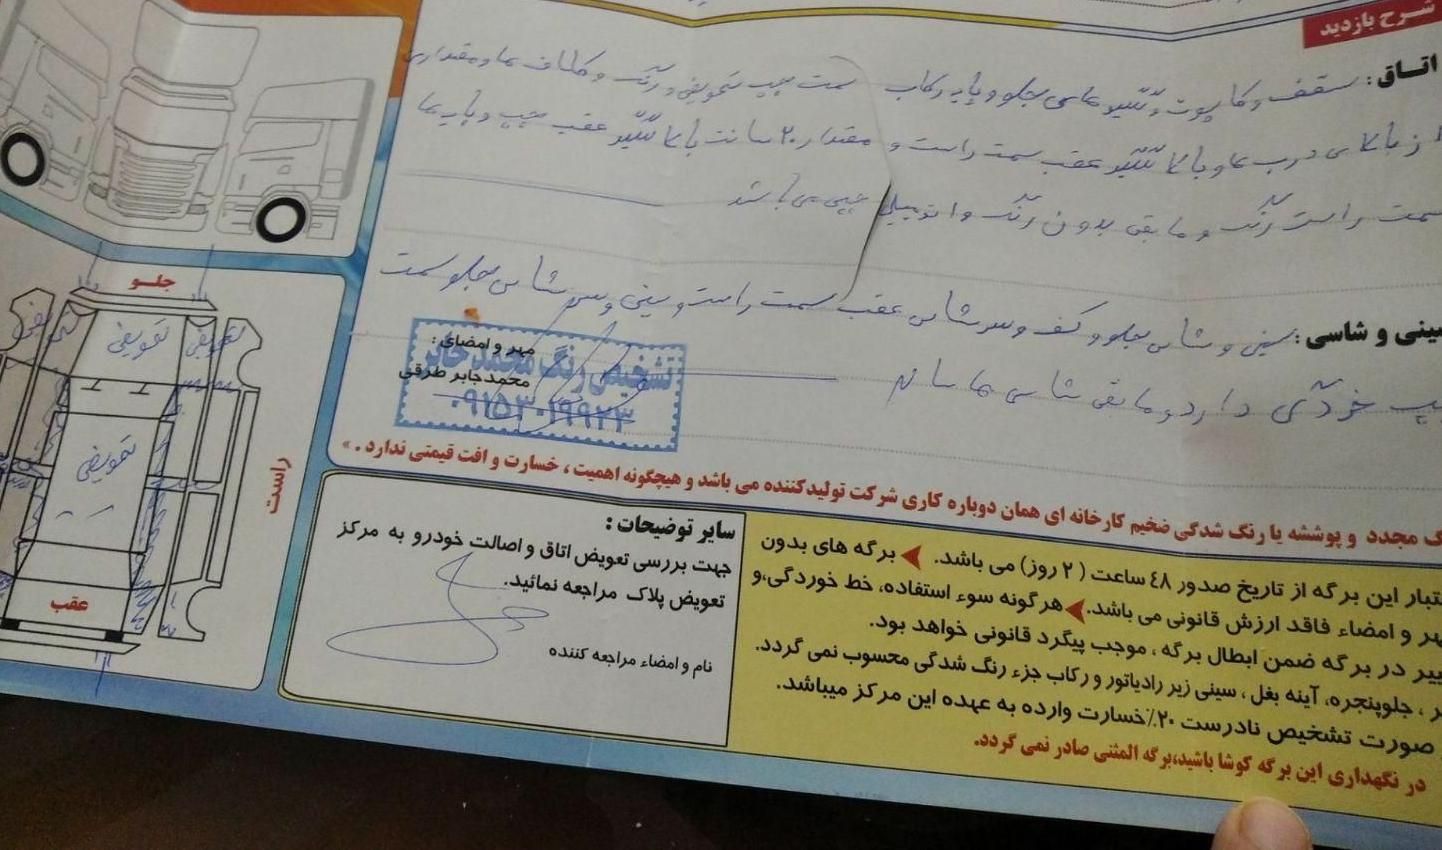 شرح بازدید
اتاق: سقف و کاپوت و گلگیرهای جلو و پایه رکاب سمت چپ تعویض و رنگ و کلاف ها و مقداری
از بالای درب ها و بالا گلگیر عقب سمت راست و مقدار ۲۰ سانت بالا گلگیر عقب چپ و پایه ها
سمت راست رنگ و مابقی بدون رنگ و اتومبیل چپی می باشد
سینی و شاسی: سینی و شاسی جلو و کف و سرشاسی عقب سمت راست و سینی و سرشاسی جلو سمت
چپ خوردگی دارد و مابقی شاسی ها سالم
مهر و امضای:
تشخیص رنگ محمد جابر
محمد جابر طرقی
۰۹۱۵۳۰۱۹۹۲۳
مجدد و پوششه یا رنگ شدگی ضخیم کارخانه ای همان دوباره کاری شرکت تولیدکننده می باشد و هیچگونه اهمیت، خسارت و افت قیمتی ندارد. »
جلو
تعویض
تعویض
تعویض
راست
عقب
سایر توضیحات:
جهت بررسی تعویض اتاق و اصالت خودرو به مرکز
تعویض پلاک مراجعه نمائید.
نام و امضاء مراجعه کننده
تبار این برگه از تاریخ صدور ٤٨ ساعت (٢ روز) می باشد. برگه های بدون
هر و امضاء فاقد ارزش قانونی می باشد. هرگونه سوء استفاده، خط خوردگی،و
ییر در برگه ضمن ابطال برگه، موجب پیگرد قانونی خواهد بود.
ر، جلوپنجره، آینه بغل، سینی زیر رادیاتور و رکاب جزء رنگ شدگی محسوب نمی گردد.
صورت تشخیص نادرست ٢٠٪ خسارت وارده به عهده این مرکز میباشد.
در نگهداری این برگه کوشا باشید،برگه المثنی صادر نمی گردد.